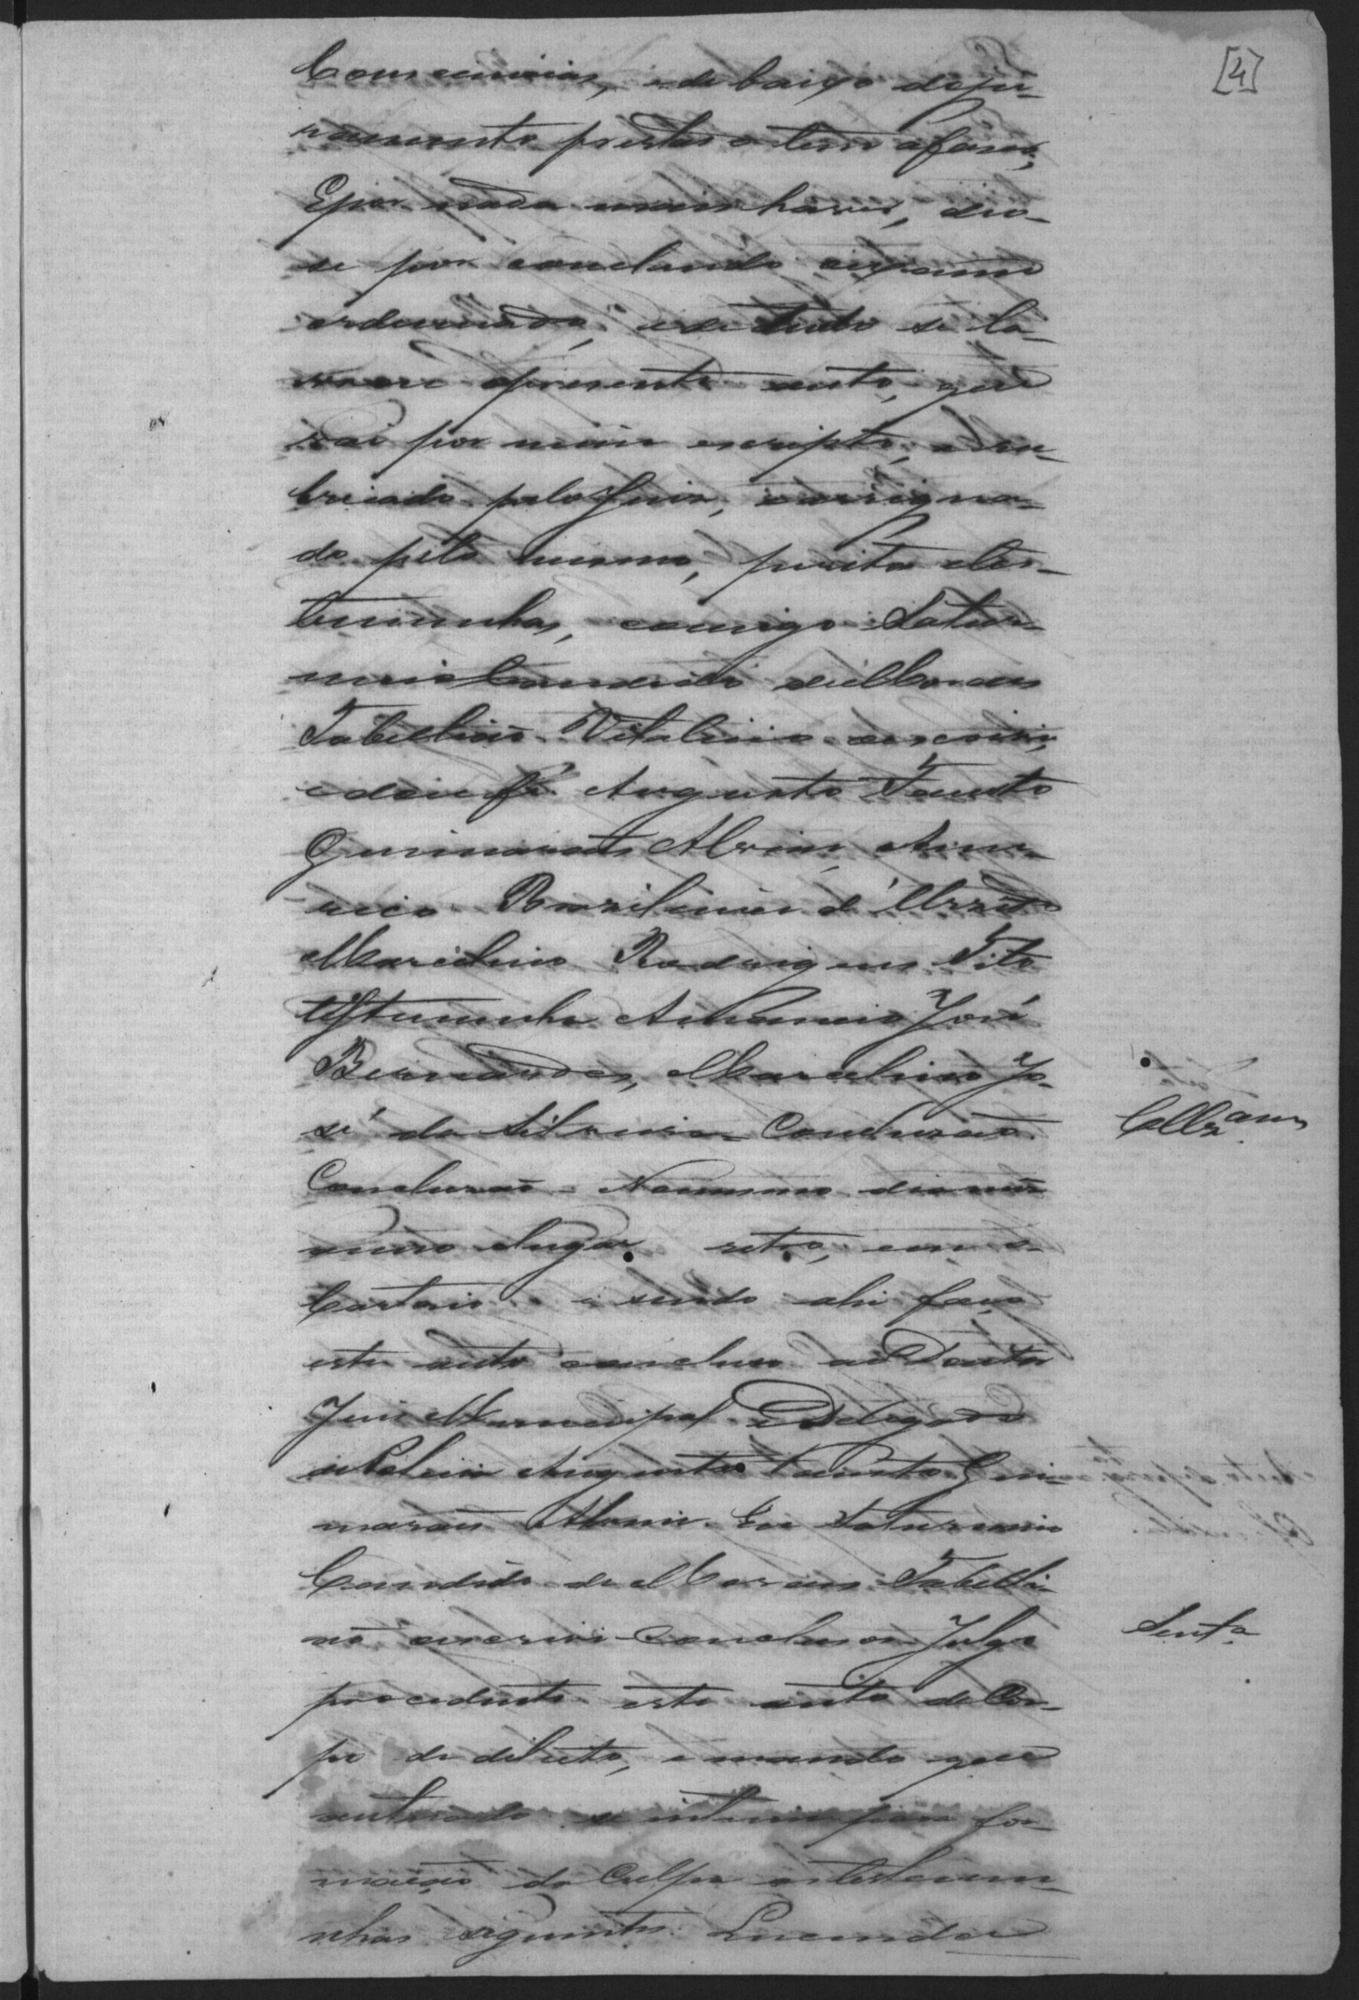 [4]
Consciencias, e debaixo de ju-
ramento prestado tem a fazer,
E por nada mais haver, deo-
se por concluido o exame
ordenado, e de tudo se la-
vrou o presente auto, que
vai por mim escripto, e ru-
bricado pelo Juiz, e assigna-
do pelo mesmo, peritos e tes-
temunhas, comigo Satur-
nino Candido de Moraes
Tabellião Vitalicio o escrevi,
e dou fé Augusto Fausto
Guimarães Alvim, Ame-
rico Brasiliense d'
Marcelino Rodrigues
testemunha Amancio José
Bernardes, Marcelino Jo-
sé da Silveira - Conclusão
Conclusão - No mesmo dia mez
anno e lugar retro, em o
Cartorio e sendo ahi faço
este auto concluso ao Doutor
Juiz Municipal e Delegado
de Policia Augusto Fausto Gui-
marães Alvim. Eu Saturnino
Candido de Moraes Tabelli-
ão o escrevi - Concluso - Julgo
procedente este auto de Cor-
po de delicto, e mando que
autuado se intime para for-
mação da Culpa as testemu-
nhas seguintes.
Cllzam
Sent.a